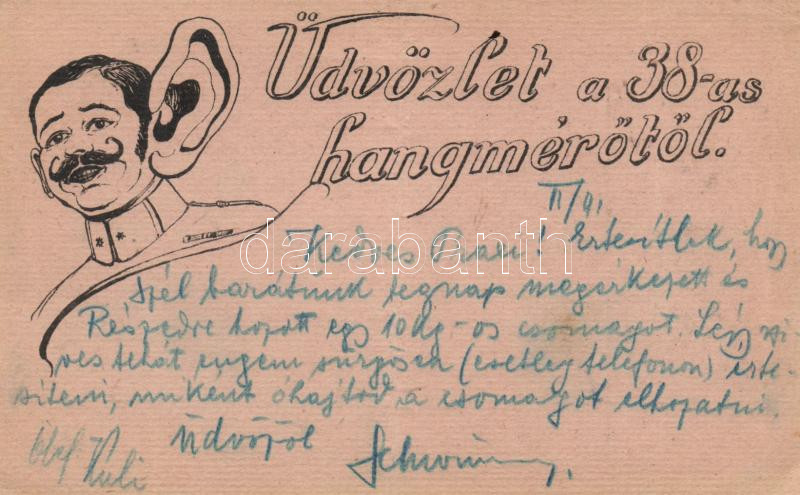 Üdvözlet a 38-as
hangmérőtől.
II/91.
Kedves ! Értesítlek, hogy
barátunk tegnap megérkezett és
Részedre hozott egy 10 kg-os csomagot. Légy szi-
ves tehát engem sürgősen (esetleg telefonon) érte-
siteni, miként óhajtod a csomagot elhozatni.
Üdvözöl
darabanth.com